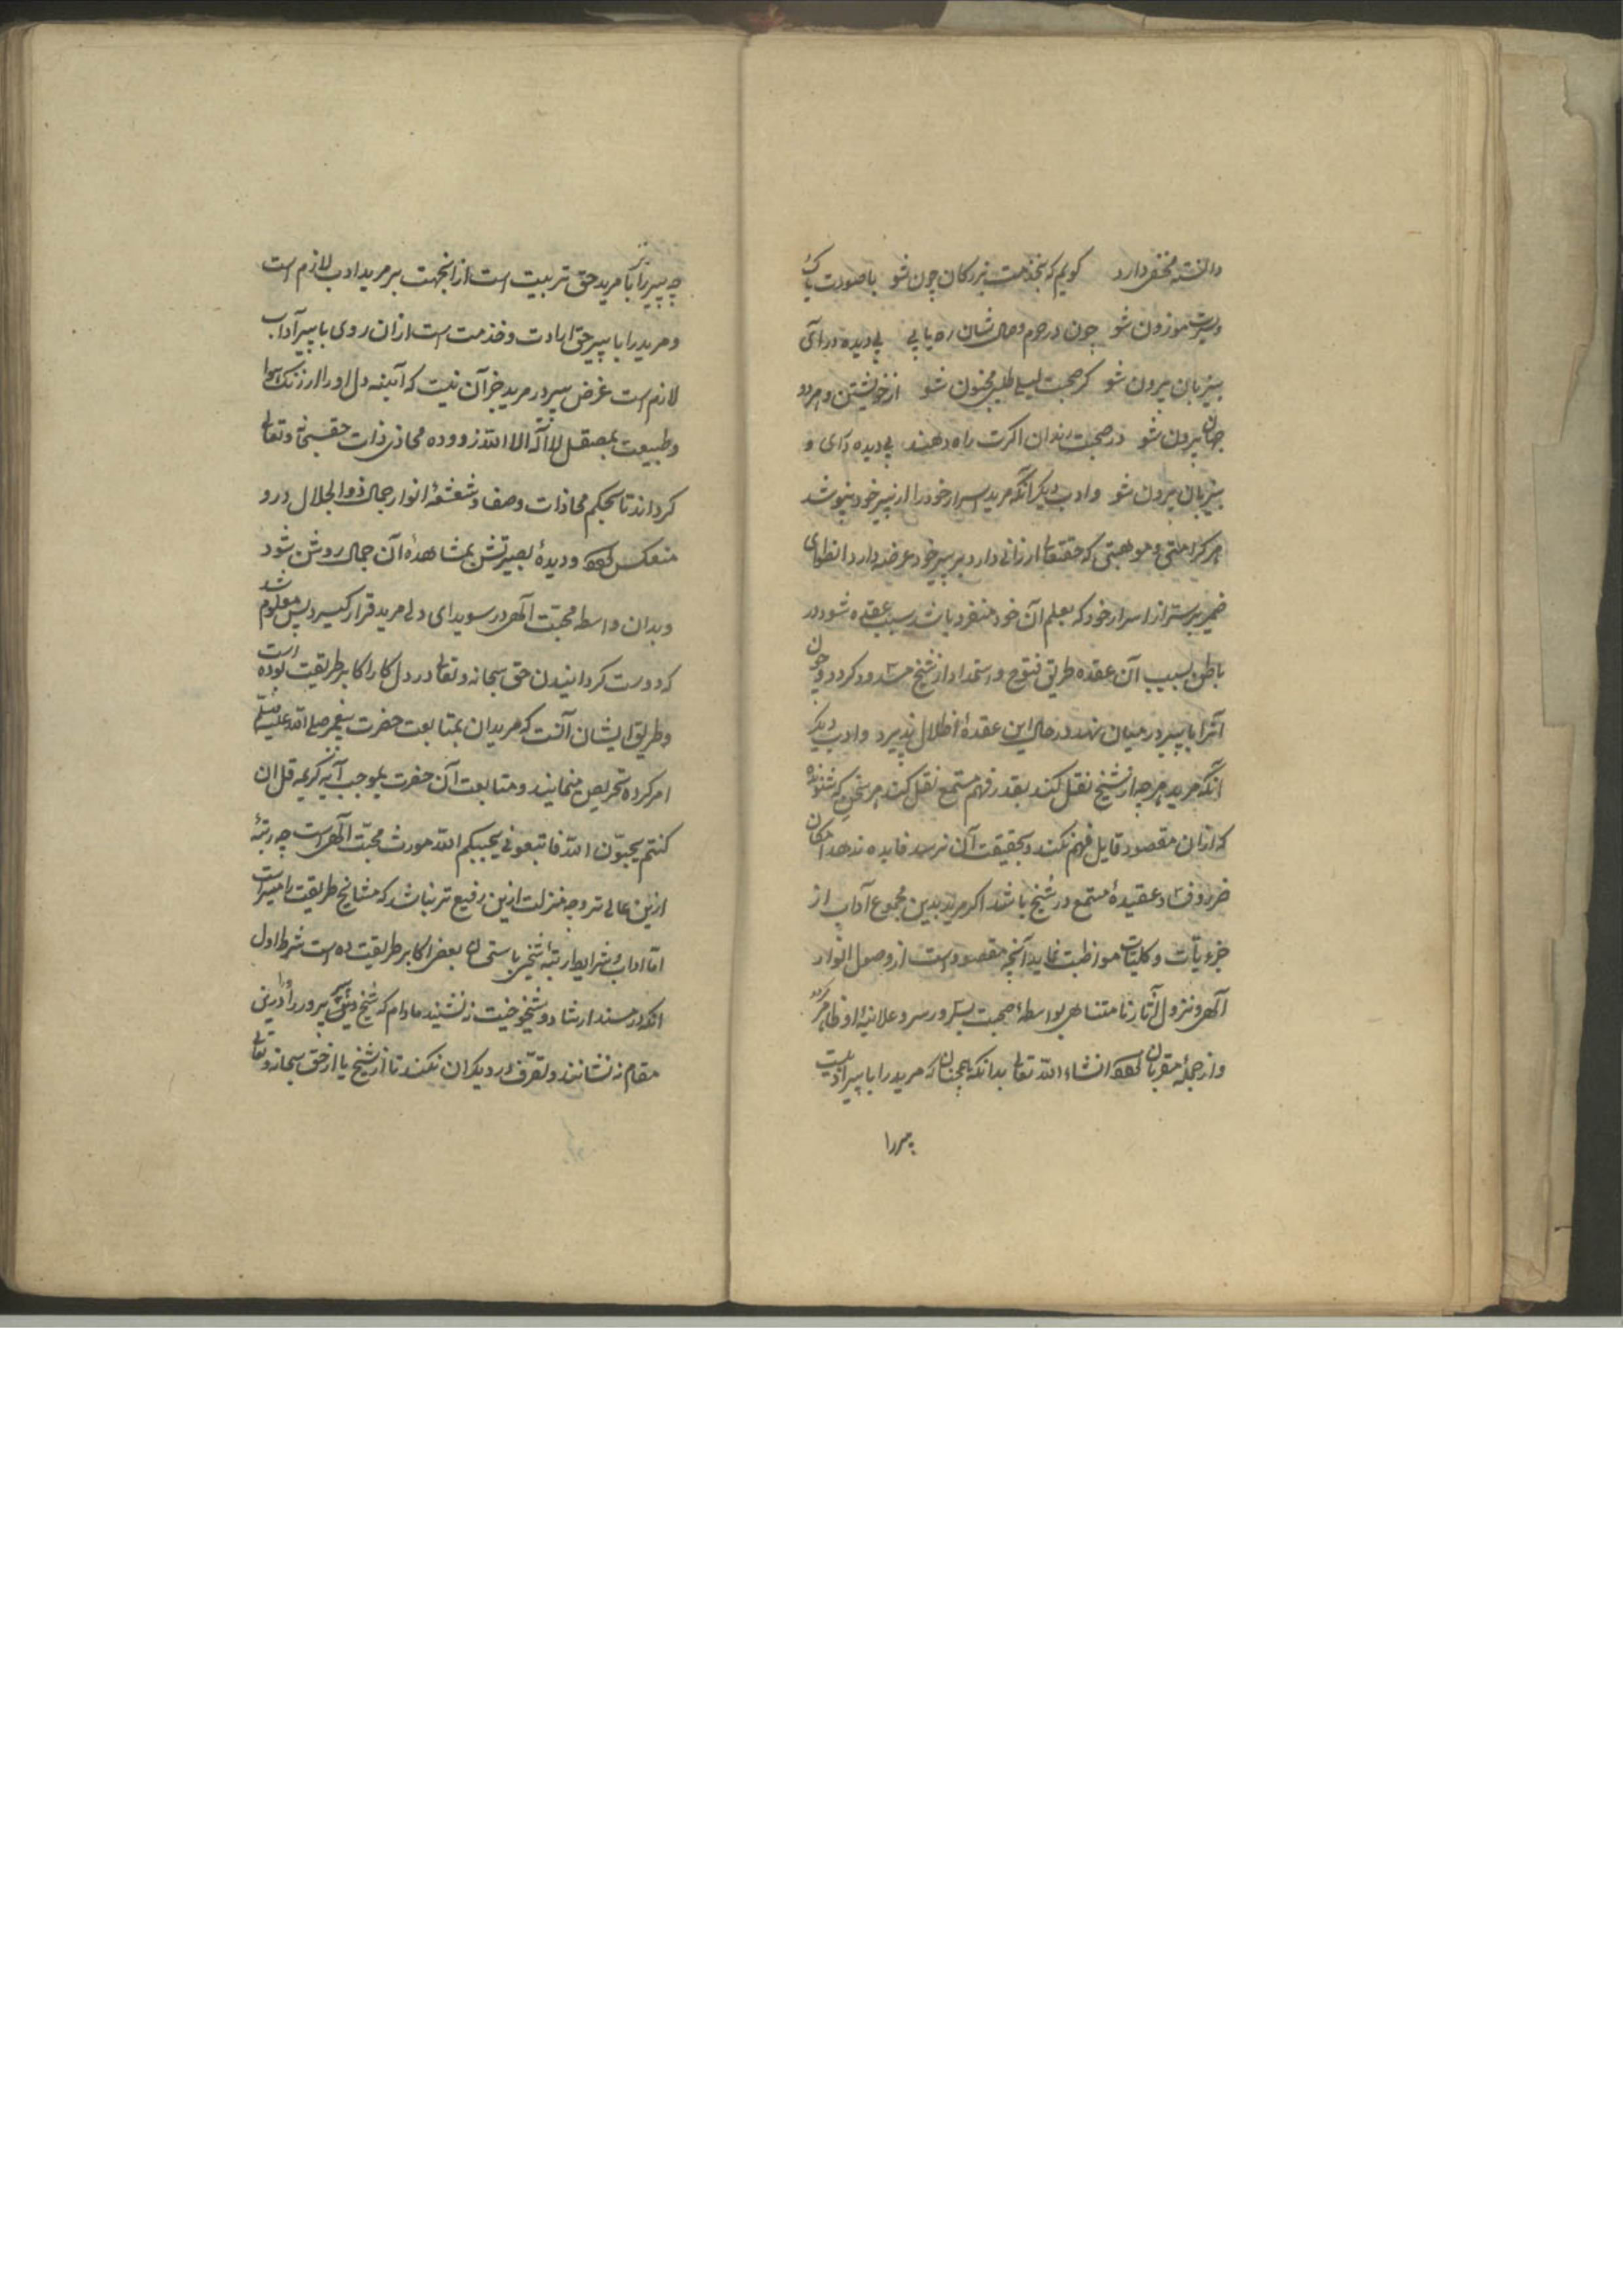 دانسته مختصر دارد کویم که بخذمت بزرکان چون شو با صورت پاک
و سیرت موزون شو چون در حرم وصال شان ره یابی بی دیده در آی
بیزبان بیرون شو کر صحبت لیلی طلبی مجنون شو از خویشتن و هر دو
جهان بیرون شو در صحبت رندان اکرت راه دهند بی دیده درآی و
بیزبان بیرون شو و ادب دیکر آنکه مرید اسرار خود را از پیر خود نپوشد
هر کرامتی و موهبتی که حقتعالی ارزانی دارد بر پیر خود عرضه دارد انطوای
ضمیر بر سر از اسرار خود که بعلم آن خود منفرد باشد سبب عقده شود در
باطن و بسبب آن عقده طریق فتوح و استمداد از شیخ مسدود کردد و چون
آنرا با پیر در میان نهد در حال این عقدهٔ انحلال پذیرد و ادب دیکر
آنکه مرید هر چه از شیخ نقل کند بقدر فهم مستمع نقل کند هر سخن که شنونده
که ازان مقصود قایل فهم نکند و بحقیقت آن نرسد فایده ندهد امکان
ضرر و فساد عقیدهٔ مستمع در شیخ باشد اکر مرید بدین مجموع آداب از
جزویات و کلیات مواظبت نماید آنچه مقصود است از وصول انوار
آلهی و نزول آثار نامتناهی بواسطهٔ صحبت پیر در سر و علانیهٔ او ظاهر کردد
و از جملهٔ مقربان کردد انشاء الله تعالی بدانکه همچنان که مرید را با پیر ادبیست
پیر را
چه پیر را با مرید حق تربیت است از انجهت بر مرید ادب لازم است
و مرید را با پیر حق ارادت و خذمت است ازان روی با پیر آداب
لازم است غرض پیر در مرید جز آن نیست که آیینه دل او را از زنک هوا
و طبیعت بمصقل لا اله الا الله زدوده محاذی ذات حق سبحانه و تعالی
کرداند تا بحکم محاذات وصفا و شعشعهٔ انوار جمال ذو الجلال درو
منعکس کردد و دیدهٔ بصیرتش بمشاهدهٔ آن جمال روشن شود
و بدان واسطه محبت آلهی در سویدای دل مرید قرار کیرد پس معلوم شد
که دوست کردانیدن حق سبحانه و تعالی در دل کار اکابر طریقت بوده است
و طریق ایشان آنست که مریدان بمتابعت حضرت پیغمبر صلی الله علیه وسلم
امر کرده تحریص مینمایند و متابعت آن حضرت بموجب آیه کریمه قل ان
کنتم یحبّون الله فاتبعونی یحببکم الله مورث محبّت آلهی است چه رتبهٔ
ازین عالی تر و چه منزلت ازین رفیع تر باشد که مشایخ طریقت را میسر است
امّا اداب و شرایط رتبهٔ شیخی باستی بعض اکابر طریقت ده است شرط اول
انکه در مسند ارشاد و شیخوخیت نه نشیند مادام که شیخ پرور را درین
مقام نه نشانند و تصرّف در دیکران نکند تا از شیخ یا از حق سبحانه و تعالی